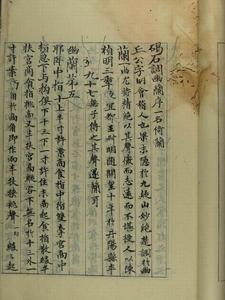 碣石調幽蘭序一名倚蘭
丘公字明會稽人也梁末隱於九疑山妙絕楚調於幽
蘭一曲尤特精絕以其聲微而志遠而不堪授人以陳
禎明三年授宜都王叔明隨開皇十年於丹陽縣卒
年九十七無子傳之其聲遂簡耳
幽蘭第五
耶臥中指十上半寸許案商食指中指雙牽宮商中
指急下与拘俱下十三下一寸許住末商起食指散緩半
扶宮商食指挑商又半扶宮商縱容下無名於十三外一
寸許案商角於商角即作兩半扶挾挑聲一句緩緩起